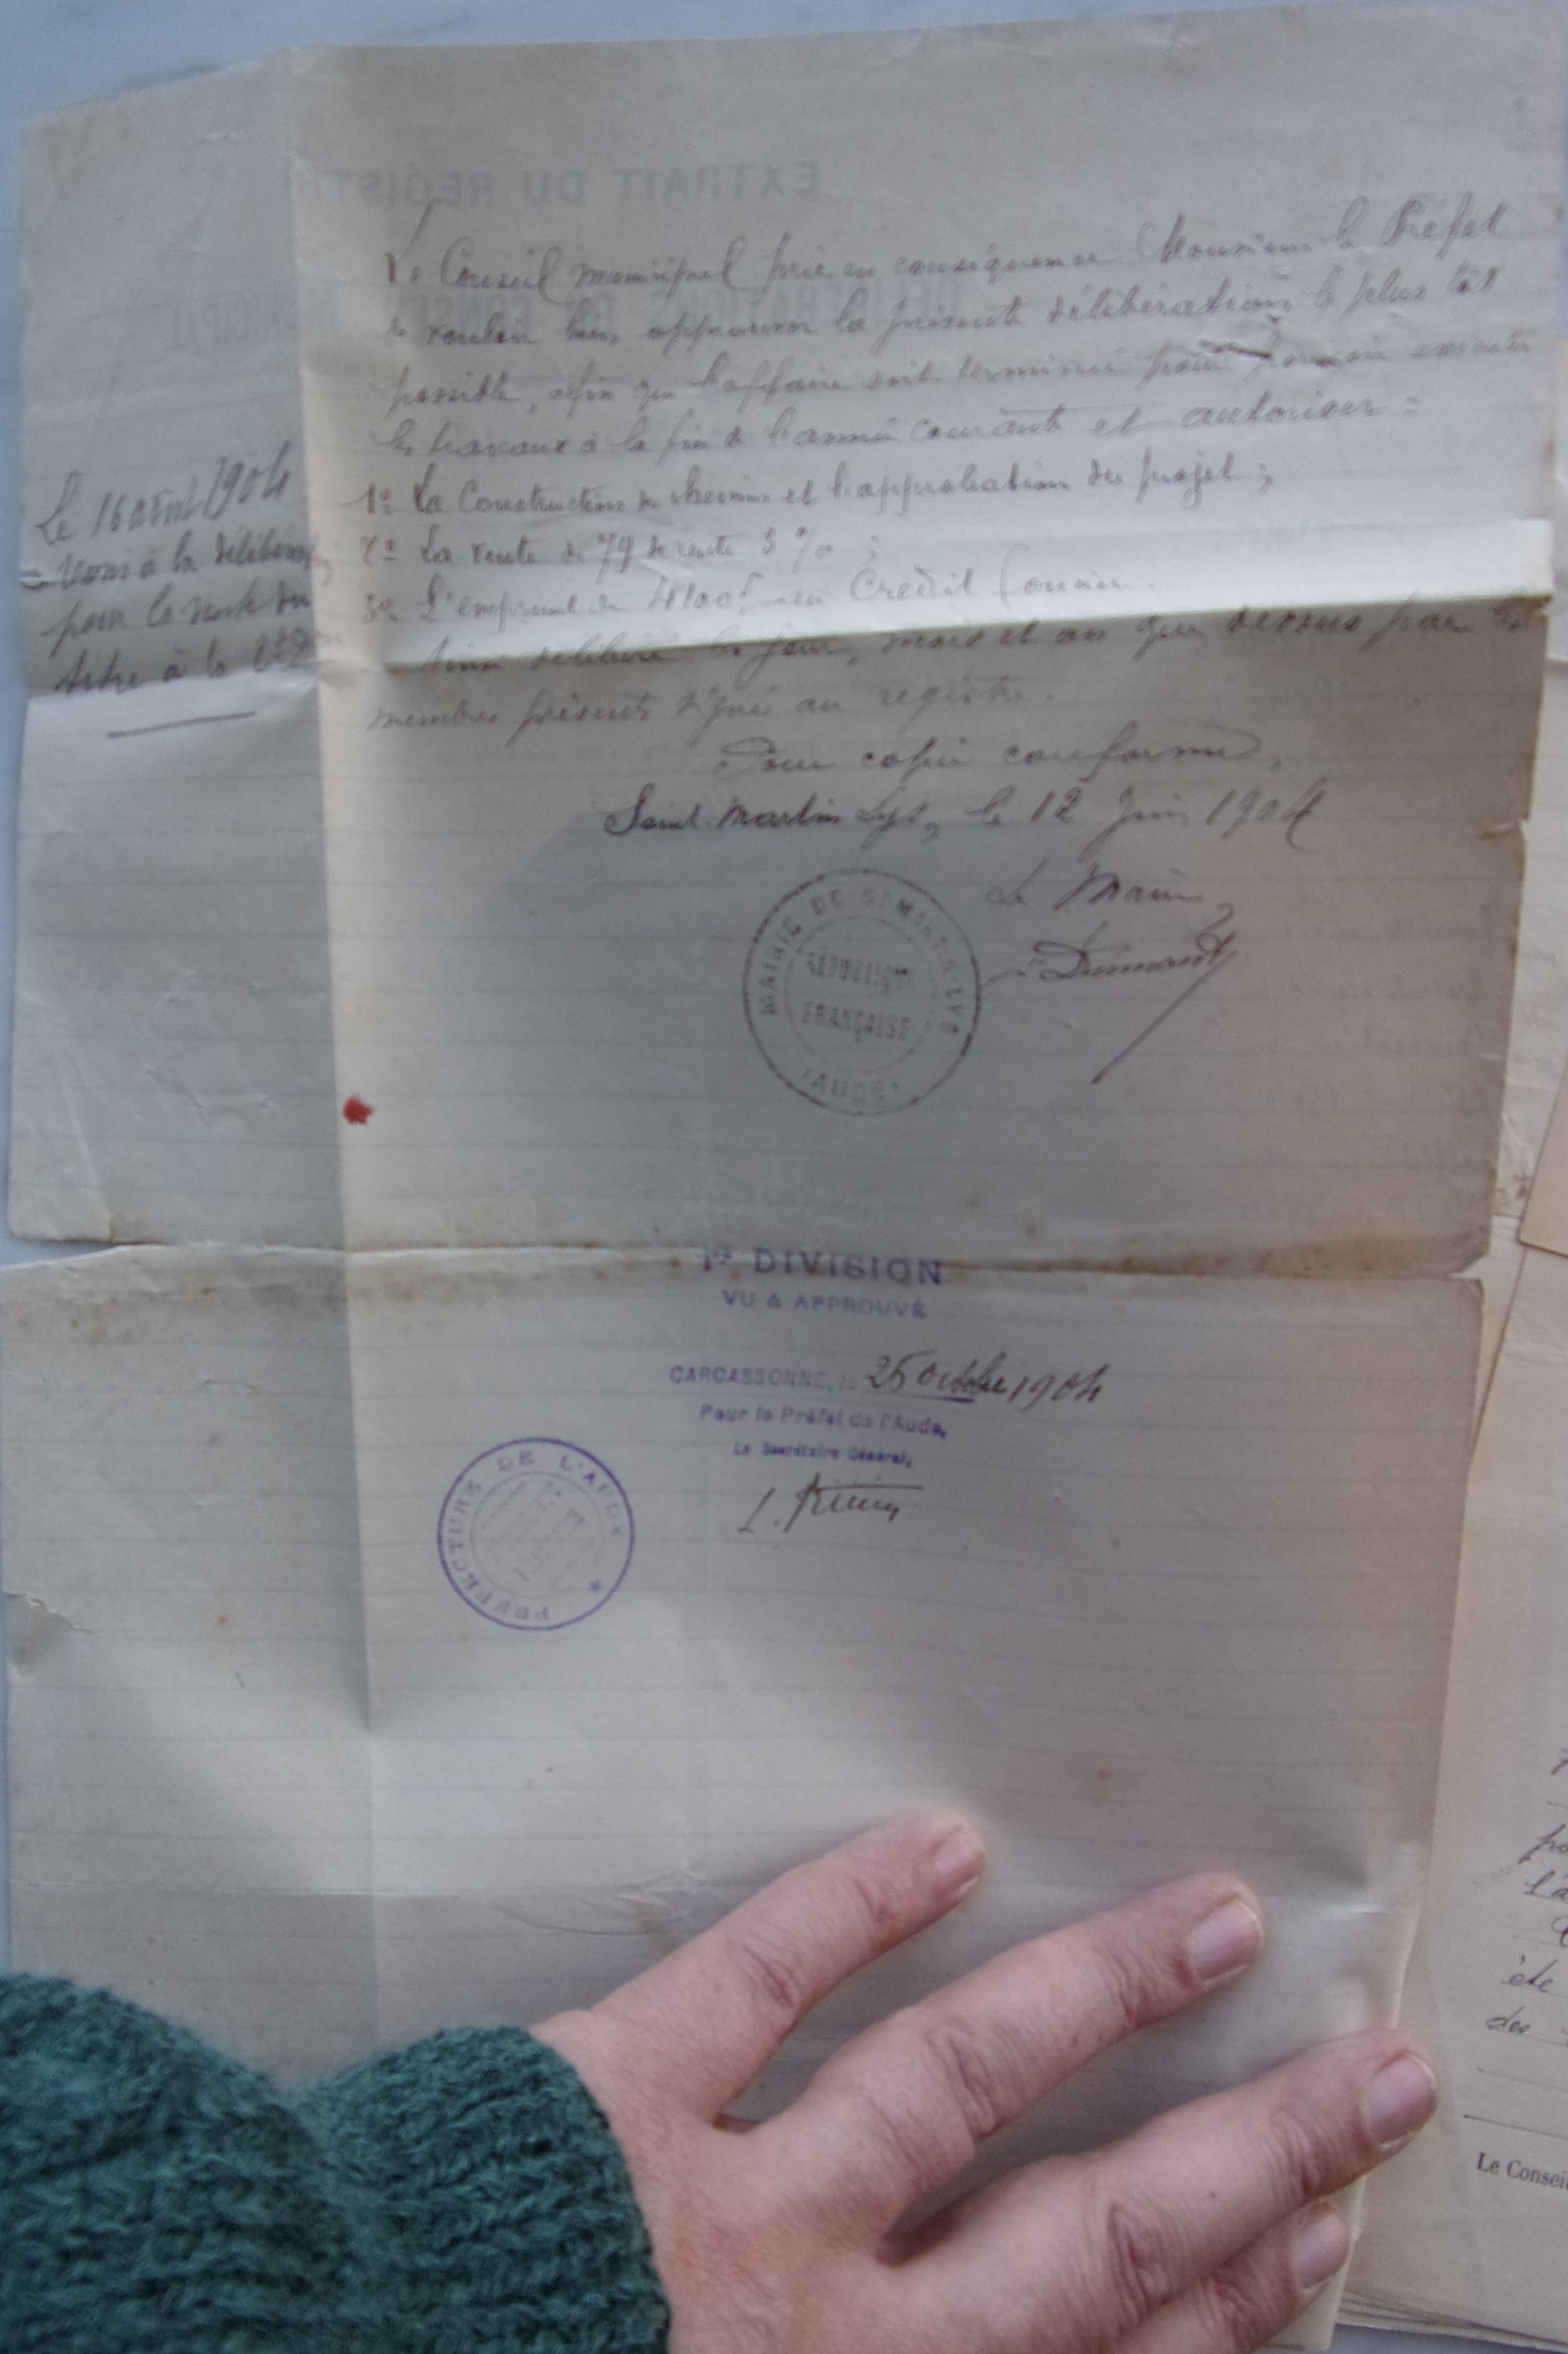 Le Conseil municipal prie en conséquence Monsieur le Préfet
de vouloir bien approuver la présente délibération le plus tôt
possible, afin que l'affaire soit terminée pour pouvoir exécuter
les travaux à la fin de l'année courante et autoriser :
1º La Construction du chemin et l'approbation du projet ;
2º La vente de 79 de rente 3 % ;
3º L'emprunt de 4100f au Credit foncier.
Ainsi délibéré les jour, mois et an que dessus par les
membres présents signés au registre.
Pour copie conforme,
Saint-Martin Lys, le 12 Juin 1904
Le Maire,
Dumont
MAIRIE DE ST MARTIN-LYS
RÉPUBLIQUE
FRANÇAISE
(AUDE)
Le 16 1904
à la délibération
pour la vente du
titre à la
1re DIVISION
VU & APPROUVÉ
CARCASSONNE, le 25 octobre 1904
Pour le Préfet de l'Aude,
Le Secrétaire Général,
PRÉFECTURE DE L'AUDE
EXTRAIT DU REGISTRE
DÉLIBÉRATIONS DU CONSEIL MUNICIPAL
po
été
des
Le Conseil